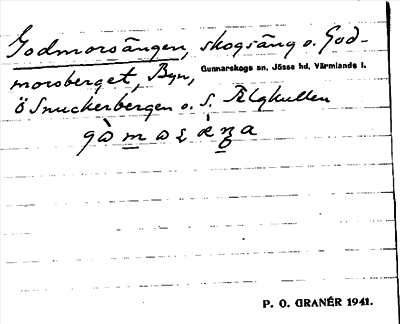 Godmorsängen, skogsäng o. God-
morsberget, Byn, Gunnarskogs sn, Jösse hd, Värmlands l.
ö Snuckerbergen o. s. Älgkullen
P. O. GRANÉR 1941.